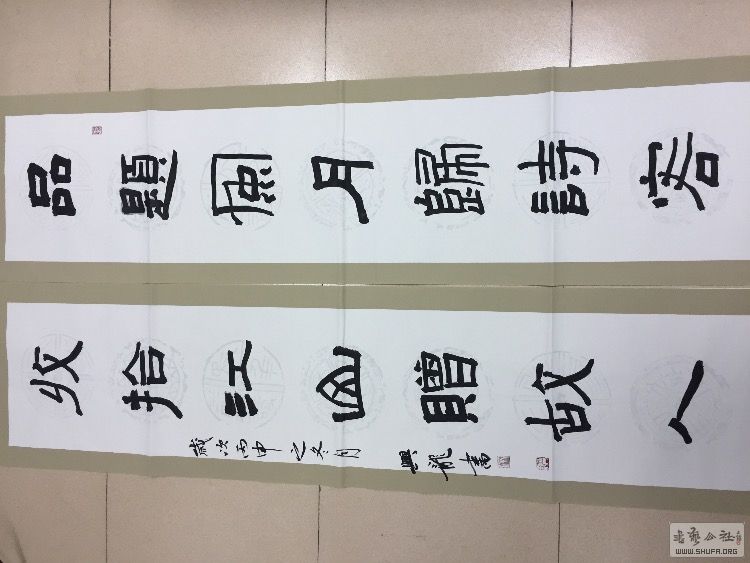 品題風月歸詩客
收拾江山贈故人
歲次丙申之冬月
興龍書
書藝公社
WWW.SHUFA.ORG